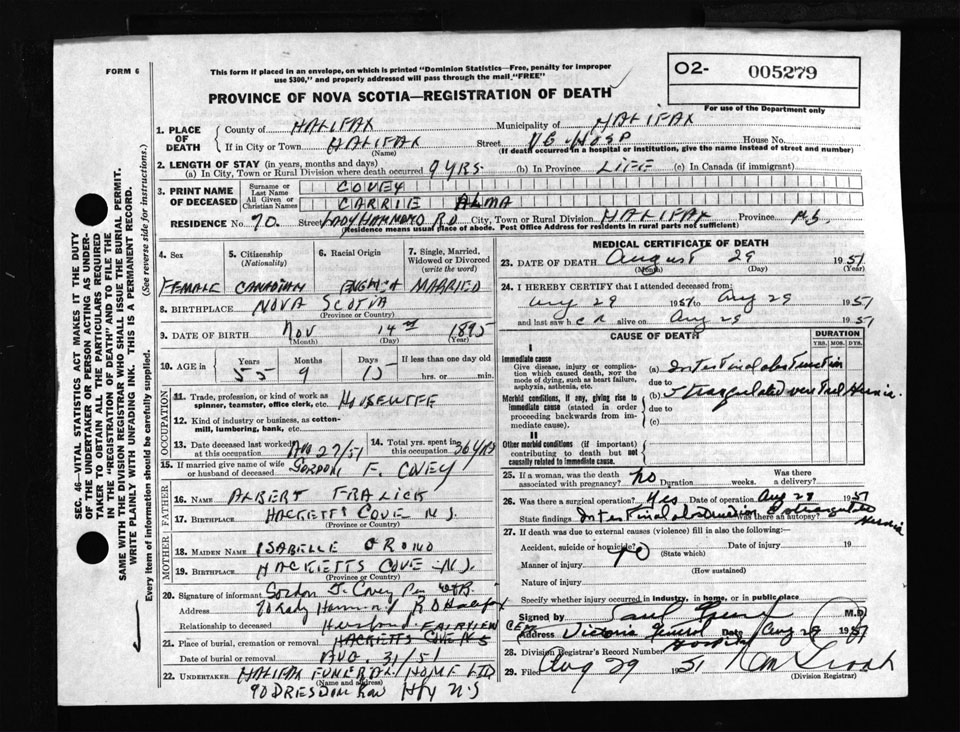 FORM 6
This form if placed in an envelope, on which is printed "Dominion Statistics—Free, penalty for improper
use $300," and properly addressed will pass through the mail "FREE"
O2- 005279
For use of the Department only
PROVINCE OF NOVA SCOTIA—REGISTRATION OF DEATH
1. PLACE OF DEATH
County of HALIFAX Municipality of HALIFAX
If in City or Town HALIFAX Street VG HOSP House No.
(Name) (If death occurred in a hospital or institution, give the name instead of street and number)
2. LENGTH OF STAY (in years, months and days)
(a) In City, Town or Rural Division where death occurred 9 YRS. (b) In Province LIFE (c) In Canada (if immigrant)
3. PRINT NAME OF DECEASED
Surname or Last Name COVEY
All Given or Christian Names CARRIE ALMA
RESIDENCE No. 70. Street LADY HAMMOND RD City, Town or Rural Division HALIFAX Province N.S.
(Residence means usual place of abode. Post Office Address for residents in rural parts not sufficient)
4. Sex
FEMALE
5. Citizenship (Nationality)
CANADIAN
6. Racial Origin
ENGLISH
7. Single, Married, Widowed or Divorced (write the word)
MARRIED
8. BIRTHPLACE NOVA SCOTIA
(Province or Country)
9. DATE OF BIRTH Nov 14th 1895
(Month) (Day) (Year)
10. AGE in Years 55 Months 9 Days 15 If less than one day old
hrs. or min.
OCCUPATION
11. Trade, profession, or kind of work as
spinner, teamster, office clerk, etc. HOUSEWIFE
12. Kind of industry or business, as cotton-
mill, lumbering, bank, etc.
13. Date deceased last worked at this occupation Aug 27/51
14. Total yrs. spent in this occupation 36 YRS
15. If married give name of wife
or husband of deceased GORDON F. COVEY
FATHER
16. NAME ALBERT FRALICK
17. BIRTHPLACE HACKETTS COVE N.S.
(Province or Country)
MOTHER
18. MAIDEN NAME ISABELLE
19. BIRTHPLACE HACKETTS COVE N.S.
(Province or Country)
20. Signature of informant Gordon F. Covey Per
Address 70 Lady Hammond RD Halifax
Relationship to deceased Husband
FAIRVIEW CEM
21. Place of burial, cremation or removal HACKETTS COVE N.S
Date of burial or removal AUG. 31/51
22. UNDERTAKER HALIFAX FUNERAL HOME LTD
(Name and address)
90 DRESDEN ROW Hfx N.S
MEDICAL CERTIFICATE OF DEATH
23. DATE OF DEATH August 29 1951
(Month) (Day) (Year)
24. I HEREBY CERTIFY that I attended deceased from:
Aug 29 1951 to Aug 29 1951
and last saw h er alive on Aug 29 1951
CAUSE OF DEATH
DURATION
YRS. MOS. DYS.
I
Immediate cause
Give disease, injury or complication which caused death, not the mode of dying, such as heart failure, asphyxia, asthenia, etc.
(a) Intestinal obstruction
due to
Morbid conditions, if any, giving rise to immediate cause (stated in order proceeding backwards from immediate cause).
(b) Strangulated ventral Hernia.
due to
(c)
II
Other morbid conditions (if important) contributing to death but not causally related to immediate cause.
25. If a woman, was the death associated with pregnancy? No Duration weeks. Was there a delivery?
26. Was there a surgical operation? Yes Date of operation Aug 29 1951
State findings Intestinal obstruction Strangulated Hernia Was there an autopsy?
27. If death was due to external causes (violence) fill in also the following:—
Accident, suicide or homicide? NO Date of injury 19
(State which)
Manner of injury
(How sustained)
Nature of injury
Specify whether injury occurred in industry, in home, or in public place
Signed by M.D.
Address Victoria General Hospital Date Aug 29 1951
28. Division Registrar's Record Number
29. Filed Aug 29 1951
(Division Registrar)
SEC. 46—VITAL STATISTICS ACT MAKES IT THE DUTY
OF THE UNDERTAKER OR PERSON ACTING AS UNDER-
TAKER TO OBTAIN ALL THE PARTICULARS REQUIRED
IN THE "REGISTRATION OF DEATH" AND TO FILE THE
SAME WITH THE DIVISION REGISTRAR WHO SHALL ISSUE THE BURIAL PERMIT.
WRITE PLAINLY WITH UNFADING INK. THIS IS A PERMANENT RECORD.
Every item of information should be carefully supplied. (See reverse side for instructions.)